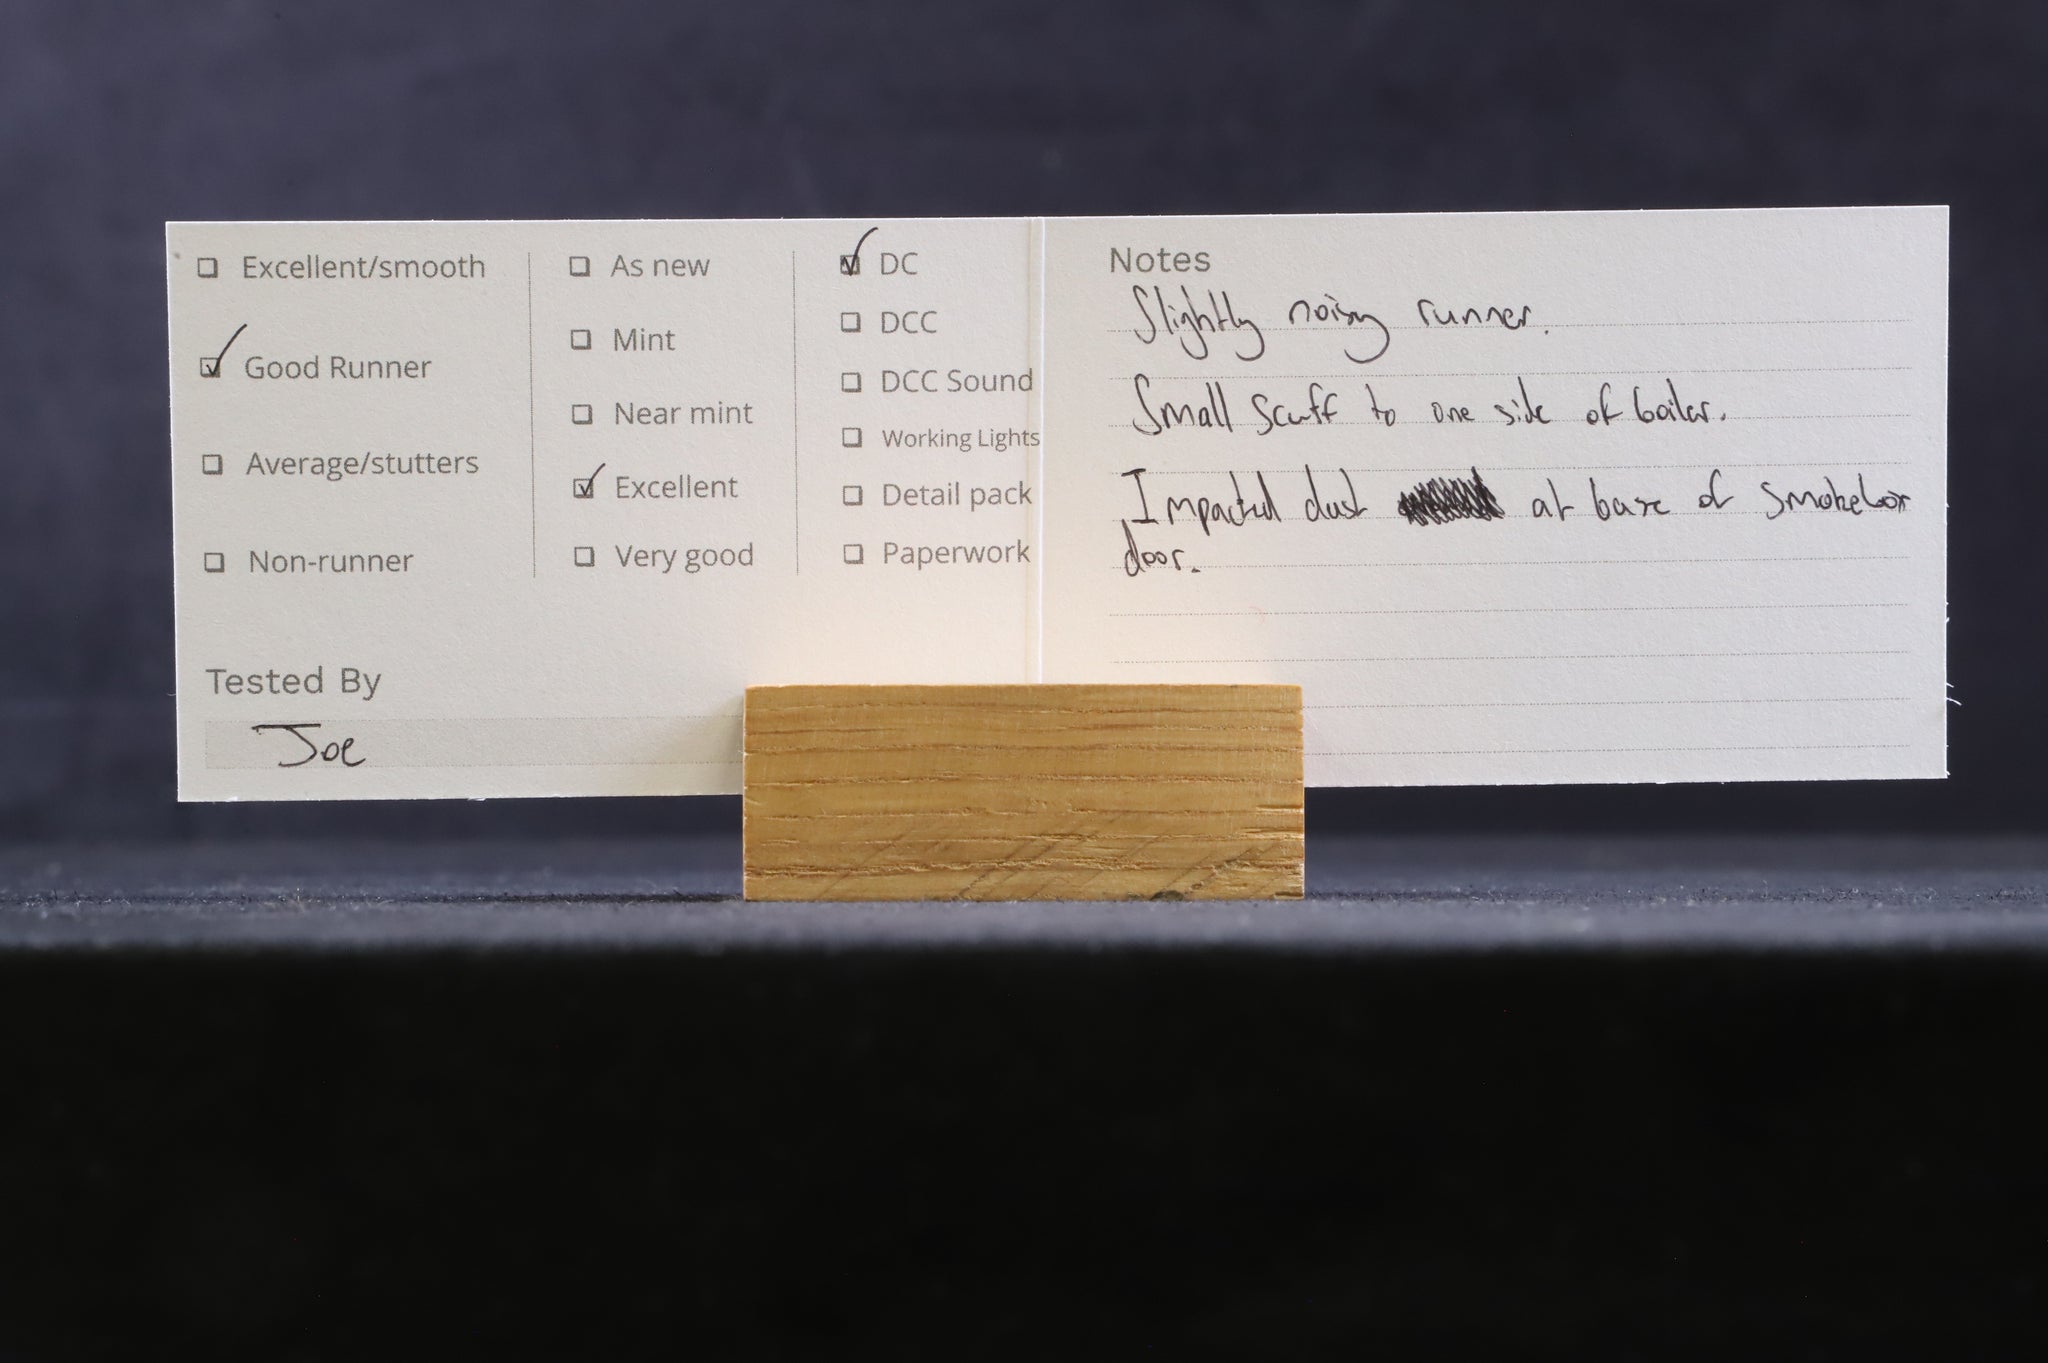 ☐ Excellent/smooth
☑ Good Runner
☐ Average/stutters
☐ Non-runner
☐ As new
☐ Mint
☐ Near mint
☑ Excellent
☐ Very good
☑ DC
☐ DCC
☐ DCC Sound
☐ Working Lights
☐ Detail pack
☐ Paperwork
Tested By
Joe
Notes
Slightly noisy runner.
Small scuff to one side of boiler.
Impacted dust at base of smokebox
door.